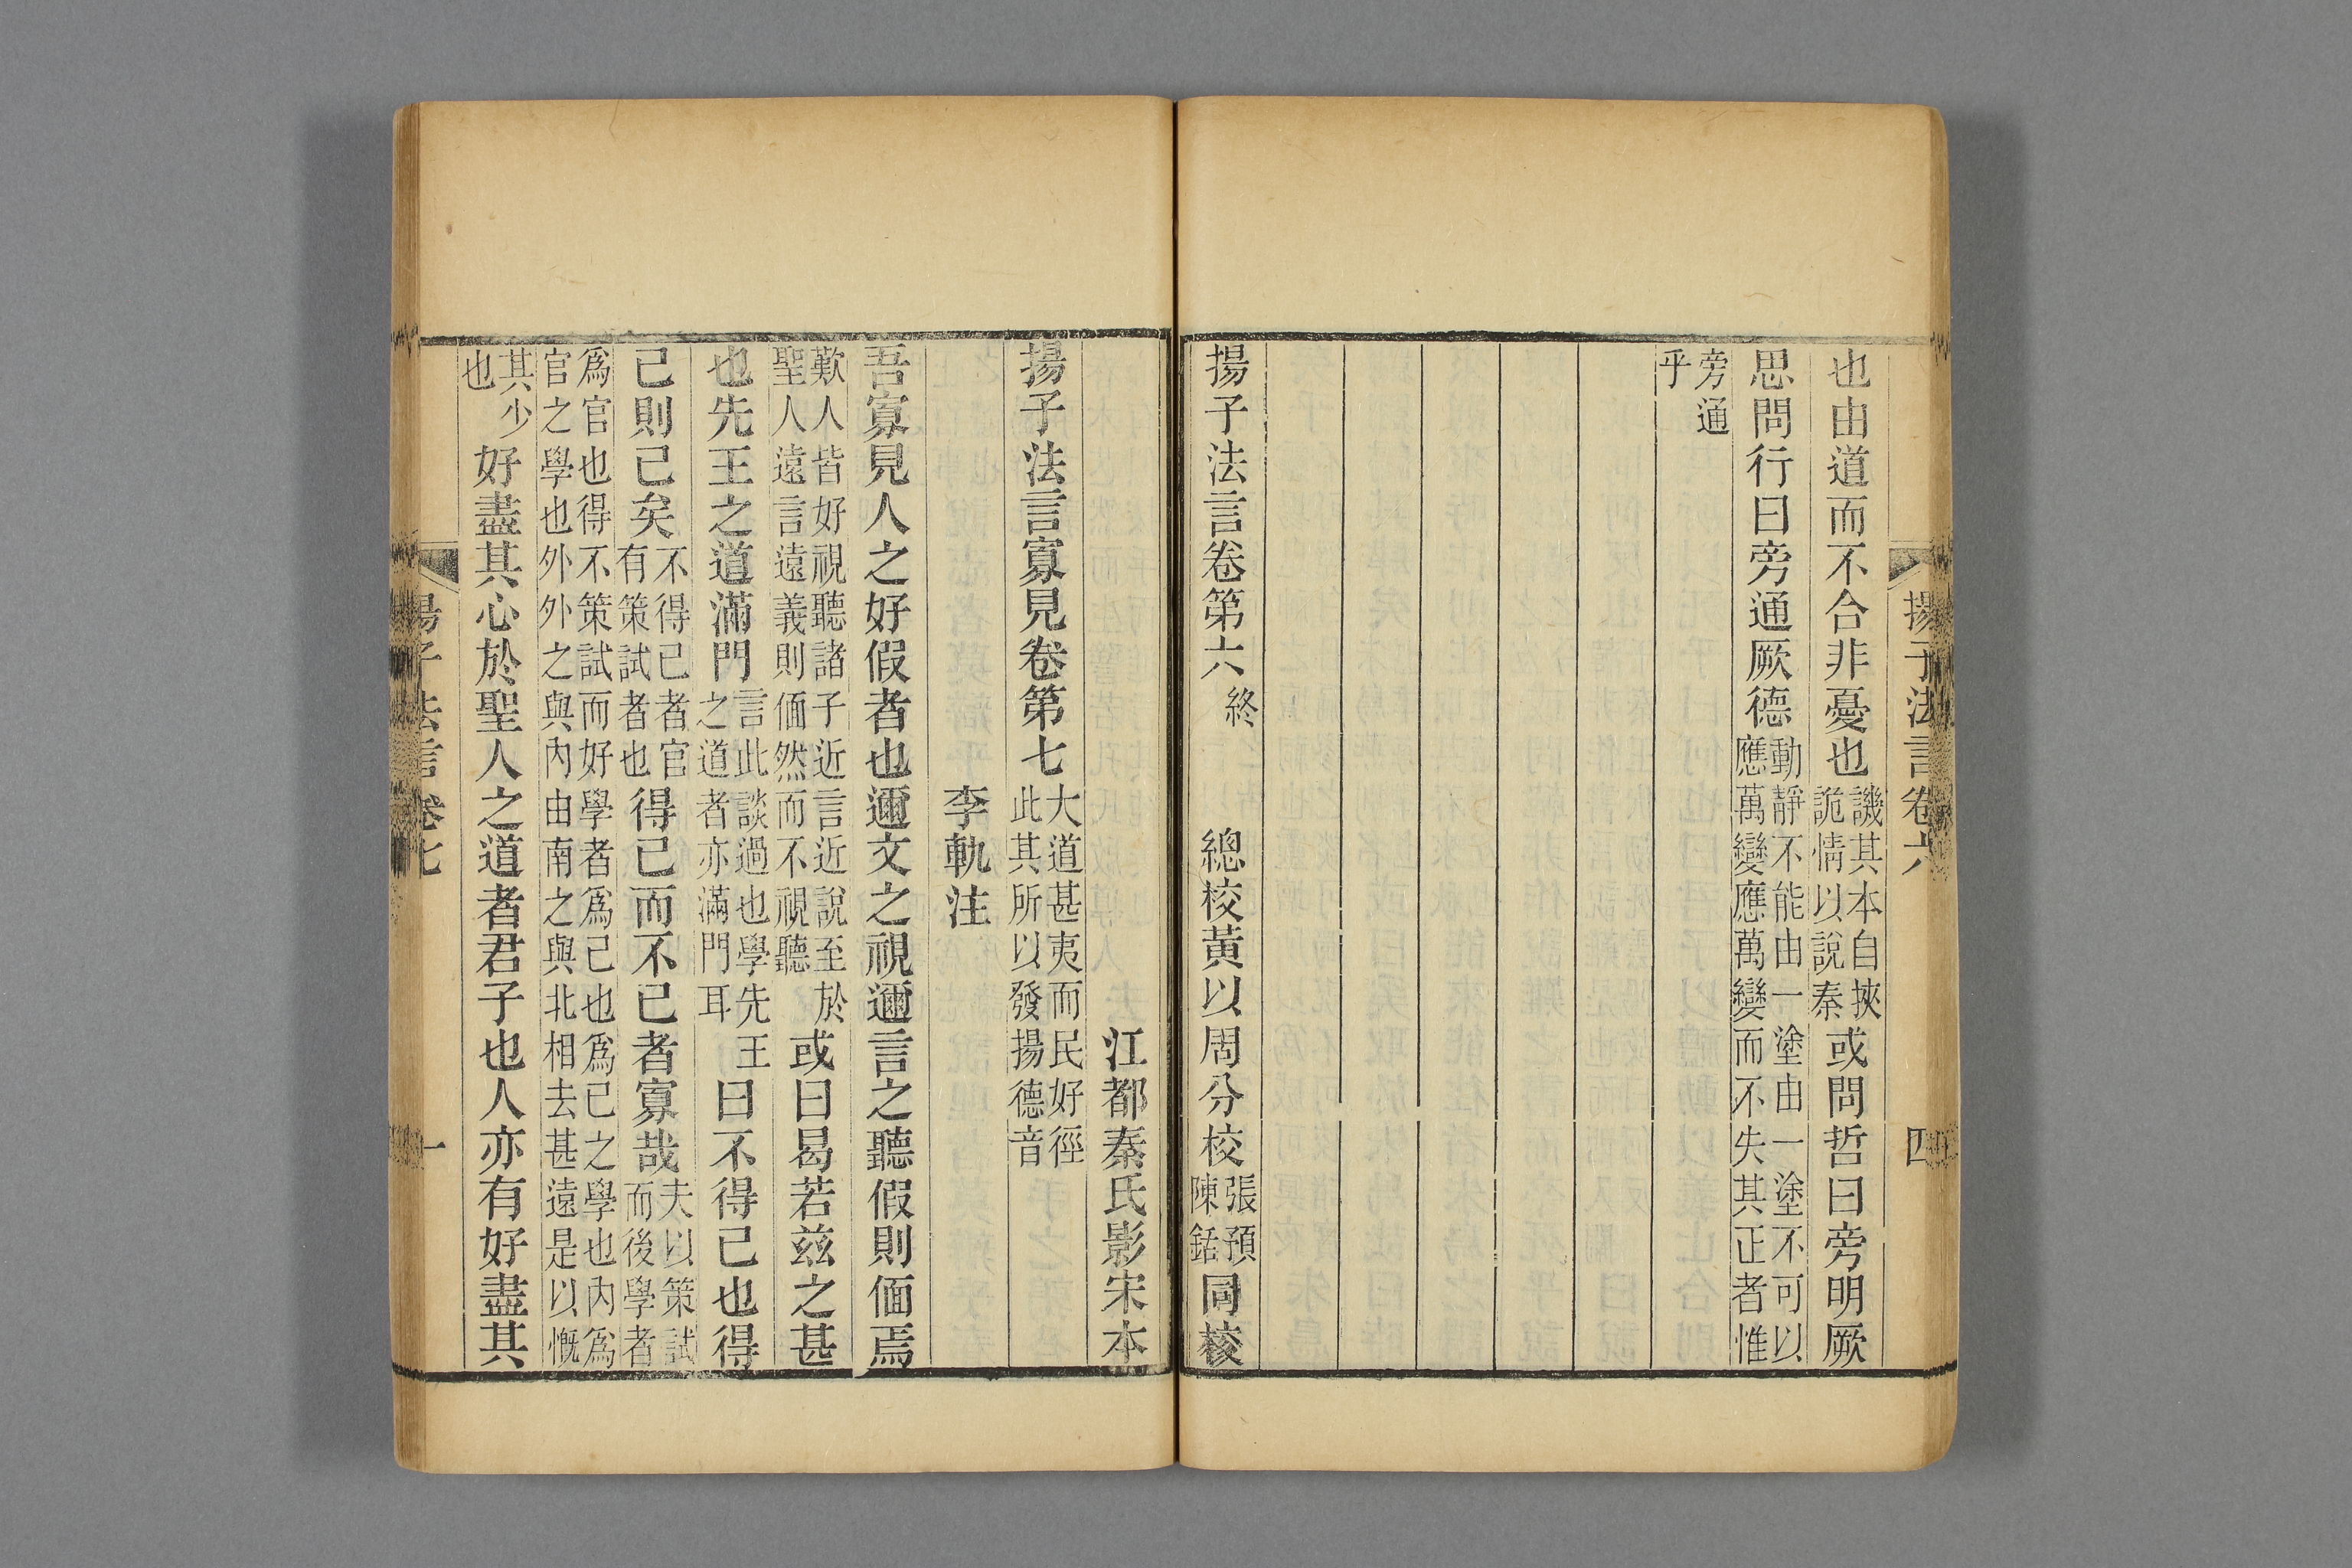 揚子法言卷六 四
也由道而不合非憂也譏其本自挾詭情以說秦或問哲曰旁明厥
思問行曰旁通厥德動靜不能由一塗由一塗不可以應萬變應萬變而不失其正者惟
旁通乎
揚子法言卷第六終 總校黃以周分校張預陳銛同校
江都秦氏影宋本
揚子法言寡見卷第七大道甚夷而民好徑此其所以發揚德音
李軌注
吾寡見人之好假者也邇文之視邇言之聽假則偭焉
歎人皆好視聽諸子近言近說至於聖人遠言遠義則偭然而不視聽或曰曷若茲之甚
也先王之道滿門言此談過也學先王之道者亦滿門耳曰不得已也得
已則已矣不得已者官有策試者也得已而不已者寡哉夫以策試而後學者
爲官也得不策試而好學者爲己也爲己之學也內爲官之學也外外之與內由南之與北相去甚遠是以慨
其少也好盡其心於聖人之道者君子也人亦有好盡其
揚子法言卷七 一